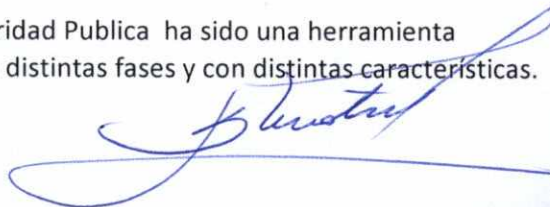 ridad Publica ha sido una herramienta
distintas fases y con distintas características.